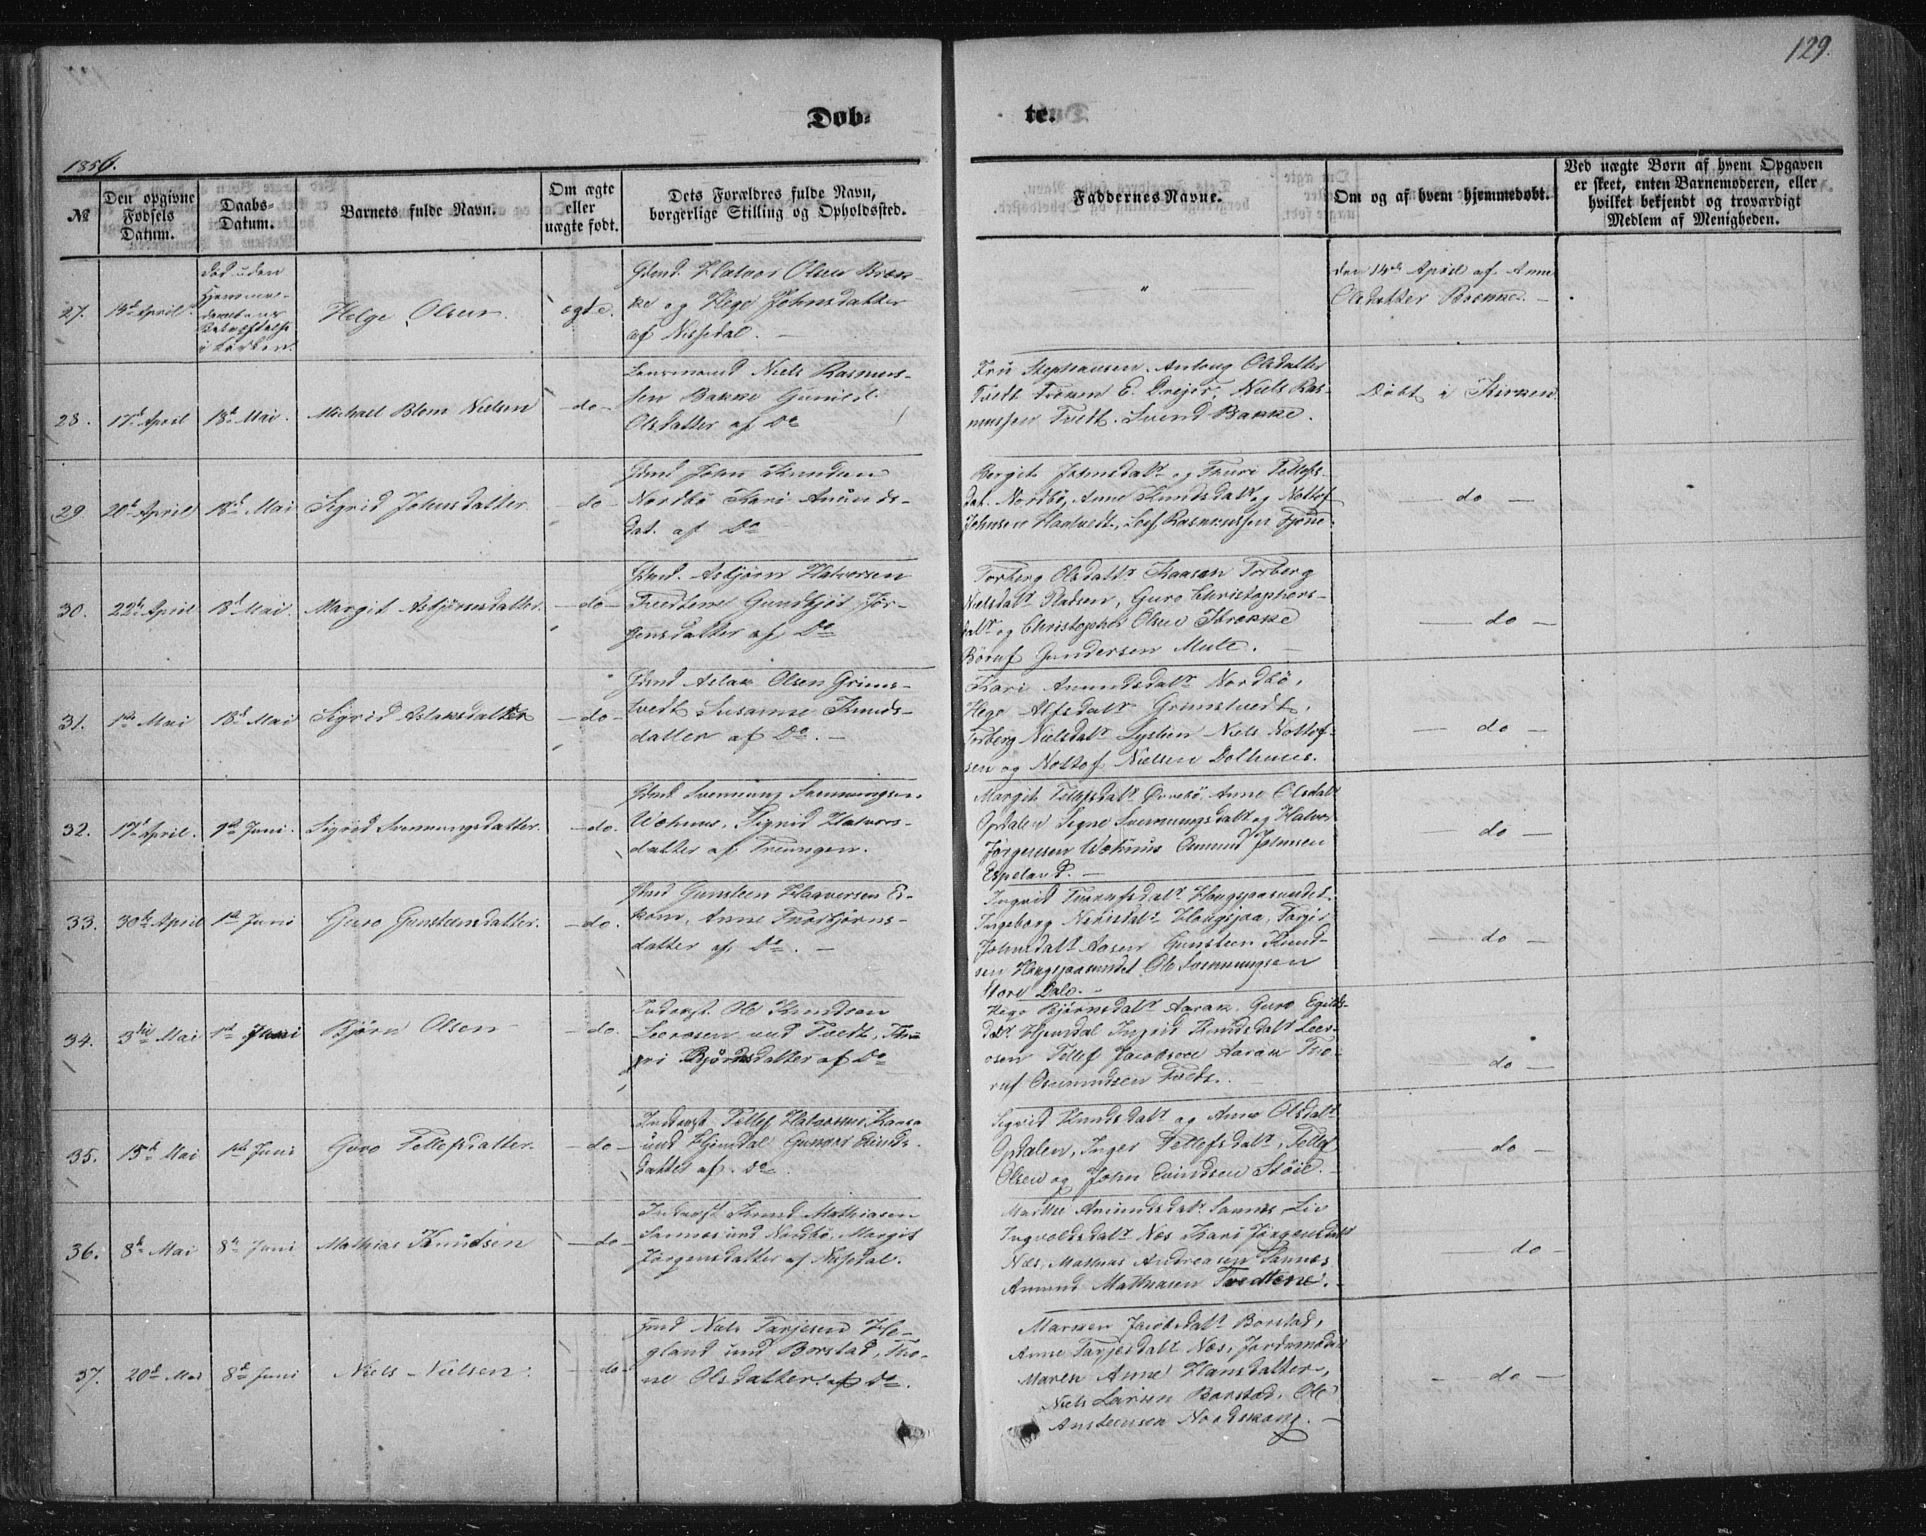 129.
Døb-
te.
1856.
№
Den opgivne
Fødsels
Datum.
Daabs-
Datum.
Barnets fulde Navn.
Om ægte
eller
uægte født.
Dets Forældres fulde Navn,
borgerlige Stilling og Opholdssted.
Faddernes Navne.
Om og af hvem hjemmedøbt.
Ved uægte Børn af hvem Opgaven
er skeet, enten Barnemoderen, eller
hvilket bekjendt og troværdigt
Medlem af Menigheden.
27.
14d April
død uden
Hjemme-
daabens
i Kirken.
Helge Olsen
egte.
Gbmd. Halvor Olsen Bræk-
ke og Hege Johnsdatter
af Nissedal. —
— " —
den 14de April af Anne
Olsdatter Brekke. —
28.
17d April
18d Mai.
Michael Blom Nielsen
— do —
Lensmand Niels Rasmus-
sen Bakke Gunild
Olsdatter af Do
Fru Stephansen, Anlaug Olsdatter
Tvedt E. Drejer, Niels Ras-
mussen Tvedt. Svend Bakke.
Døbt i Kirken
29.
20d April
18d Mai
Sigrid Johnsdatter
— do —
Gbmd John Knudsen
Nordbø Kari Amunds-
dat. af Do
Bergit Johnsdatr og Thuri Tellefs-
dat. Nordbø, Anne Knudsdatr og Nottof
Johnsen Haatvedt, Leif Rasmussen Fjone.
— do —
30.
22d April
18d Mai.
Margit Asbjørnsdatter.
— do —
Gbmd. Asbjørn Halvorsen
Tvedtene Gundbjør Jør-
gensdatter af Do
Torberg Olsdatr Kaasan Torberg
Nielsdatr Pladsen, Guro Christophers-
datr og Christopher Olsen Brekke
Gundersen Mule. —
— do —
31.
1ste Mai
18d Mai
Sigrid Aslaksdatter
— do —
Gbmd Aslak Olsen Grims-
tvedt Susanne Knuds-
datter af Do. —
Kari Amundsdatr Nordbø,
Hege Alfsdatr Grimstvedt,
Torberg Nielsdatr Lystien Niels Nottof-
sen og Nottof Nielsen Dalhuus.
— do —
32.
17d April.
1ste Juni.
Sigrid Svenungsdatter.
— do.
Gbmd Svennung Svennungsen
Wehuus, Sigrid Halvors-
datter af Treungen.
Margit Tellefsdatr Øverbø, Anne Olsdatr
Opdalen Signe Svennungsdatr og Halvor
Jørgensen Wehuus Osmund Johnsen
Espeland. —
— do —
33.
30te April
1ste Juni
Guro Gunsteensdatter.
— do.
Gbmd Gunsteen Haaversen Ei-
kom, Anne Thorbjørns-
datter af Do. —
Ingrid Haugsjaasundet.
Ingeborg Haugsjaa, Targjer
Johnsdatr Aasen Gunsteen Knud-
sen Haugsjaasundet Ole Svennungsen
Store Dale. —
— do —
34.
3die Mai
1ste Juni
Bjørn Olsen
— do.
Inderst Ole Knudsen
Leerosen und Tvedt, Thu-
ri Bjørnsdatter af Do
Hege Bjørnsdatr Aarak. Guro Egilds-
datr Hjemdal Ingrid Knudsdatr Leer-
osen Tellef Jacobsen Aarak Tho-
ruf Osmundsen Tvedt.
— do —
35.
15d Mai
1ste Juni
Guro Tellefsdatter.
— do —
Inderst. Tellef Halvorsen Kaasa
und Hjemdal Gunvor Eivinds-
datter af Do.
Sigrid Knudsdatr og Anne Olsdatr
Opdalen, Inger Tellefsdatr, Tellef
Olsen og John Evindsen Støie. —
— do —
36.
8d Mai
8de Juni
Mathias Knudsen
— do —
Inderst Knud Mathiasen
Sannes und Nordbø, Margit
Jørgensdatter af Nissedal.
Marthe Amundsdatr Sannes Liv
Ingvoldsdatr Næs Kari Jørgensdatr
Næs, Mathias Andreasen Sannes
Amund Mathiasen Tvedtene. —
do —
37.
20d Mai
8de Juni
Niels Nielsen.
— do —
Gbmd Niels Tarjesen Ho-
gland und Borstad, Tho-
ne Olsdatter af Do.
Marken Jacobsdatr Borstad,
Anne Tarjesdatr Næs, Jordemoder
Maren Anne Hansdatter,
Niels Larsen Borstad, Ole
Ansteensen Nordskaug. —
— do —